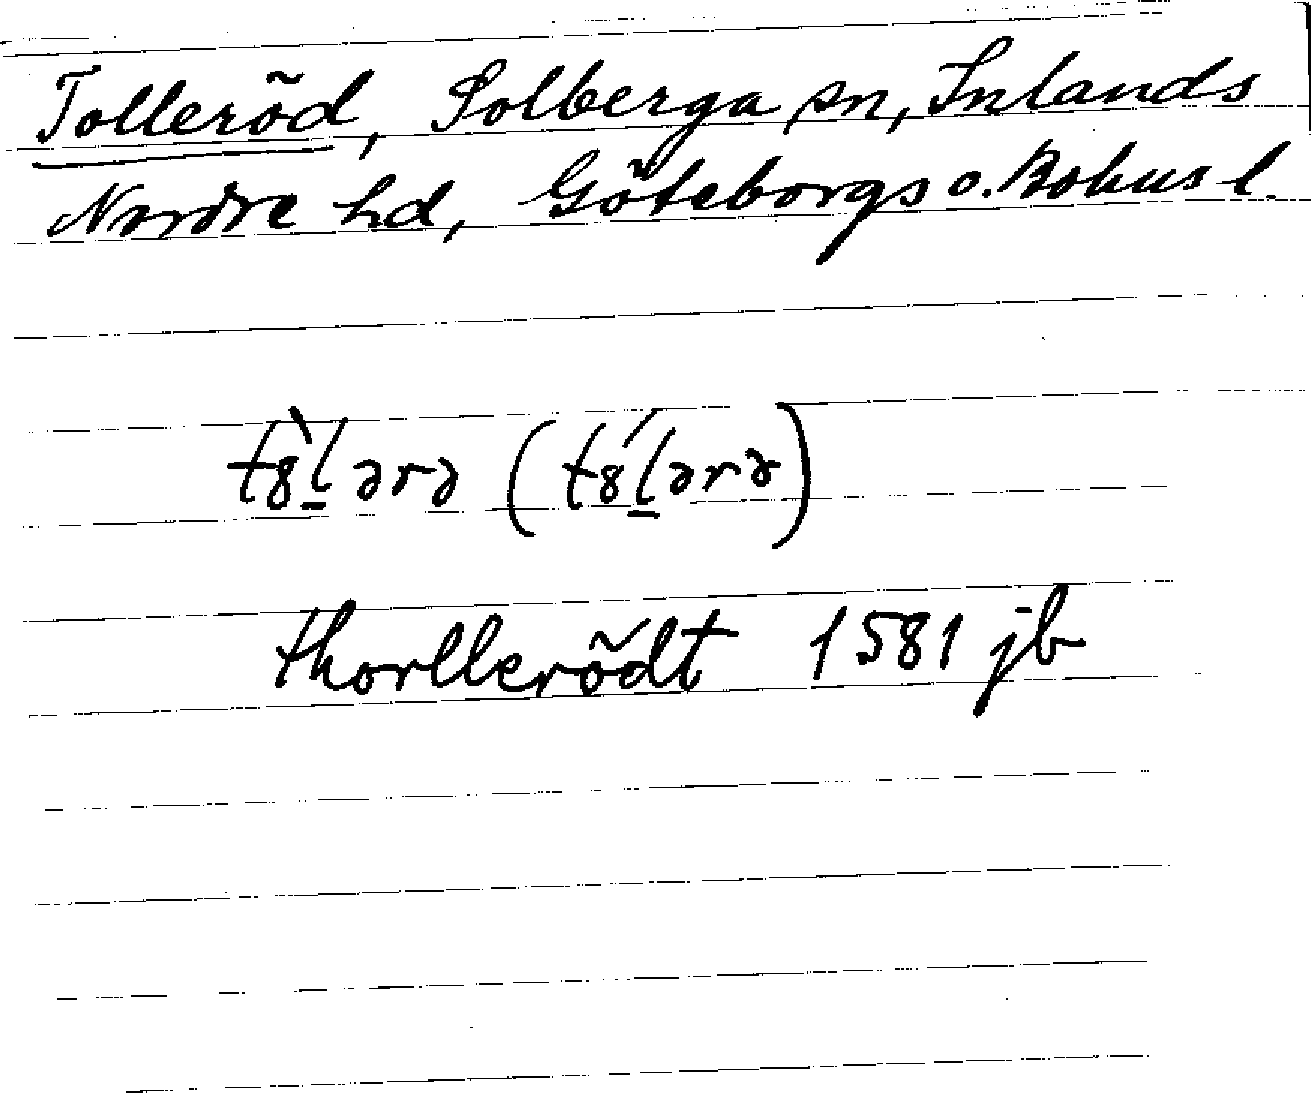 Tolleröd, Solberga sn, Inlands
Nordre hd, Göteborgs o. Bohus l.
t8̀l̲ərə (t8́l̲ərə)
thorllerödt 1581 jb